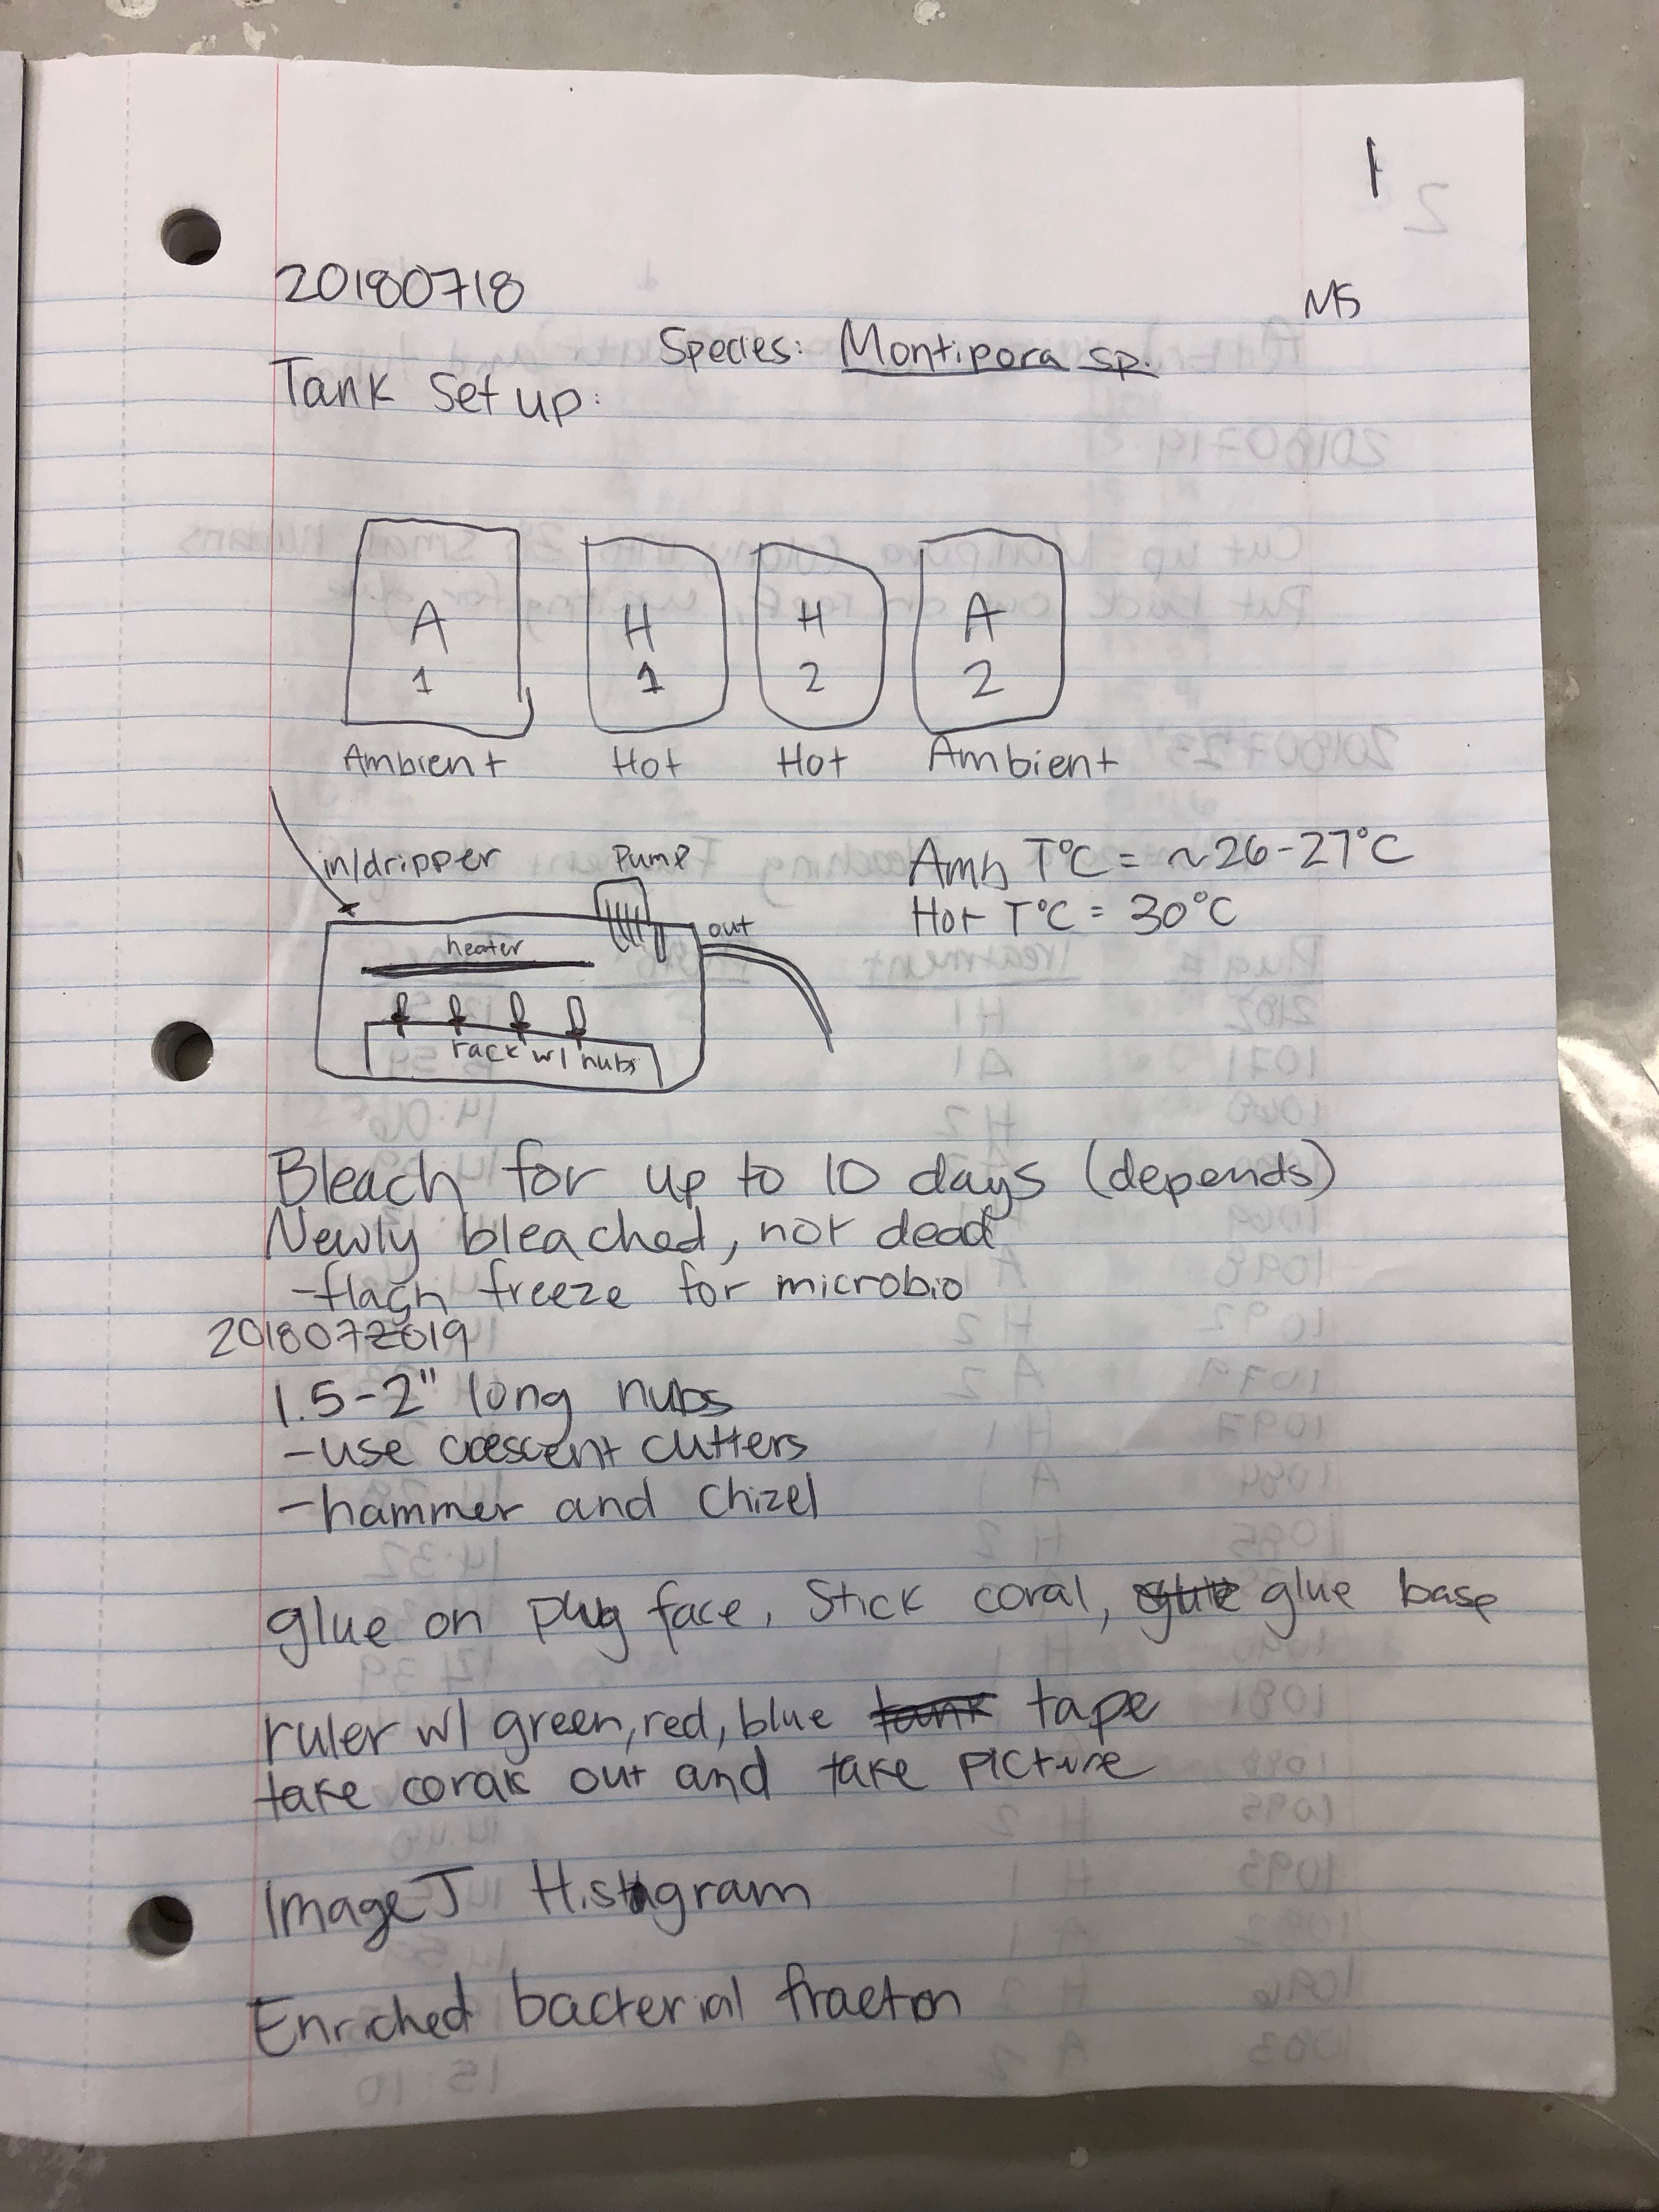 1
20180718
MS
Species: Montipora sp.
Tank Set up:
A H H A
1 1 2 2
Ambient Hot Hot Ambient
in/dripper Pump
Amb T°C = ~26-27°C
out
Hot T°C = 30°C
heater
rack w/ nubs
Bleach for up to 10 days (depends)
Newly bleached, not dead
-flash freeze for microbio
2018072019
1.5-2" long nubs
-use crescent cutters
-hammer and chizel
glue on plug face, Stick coral, glue base
ruler w/ green, red, blue tank tape
take corals out and take picture
ImageJ Histogram
Enriched bacterial fraction